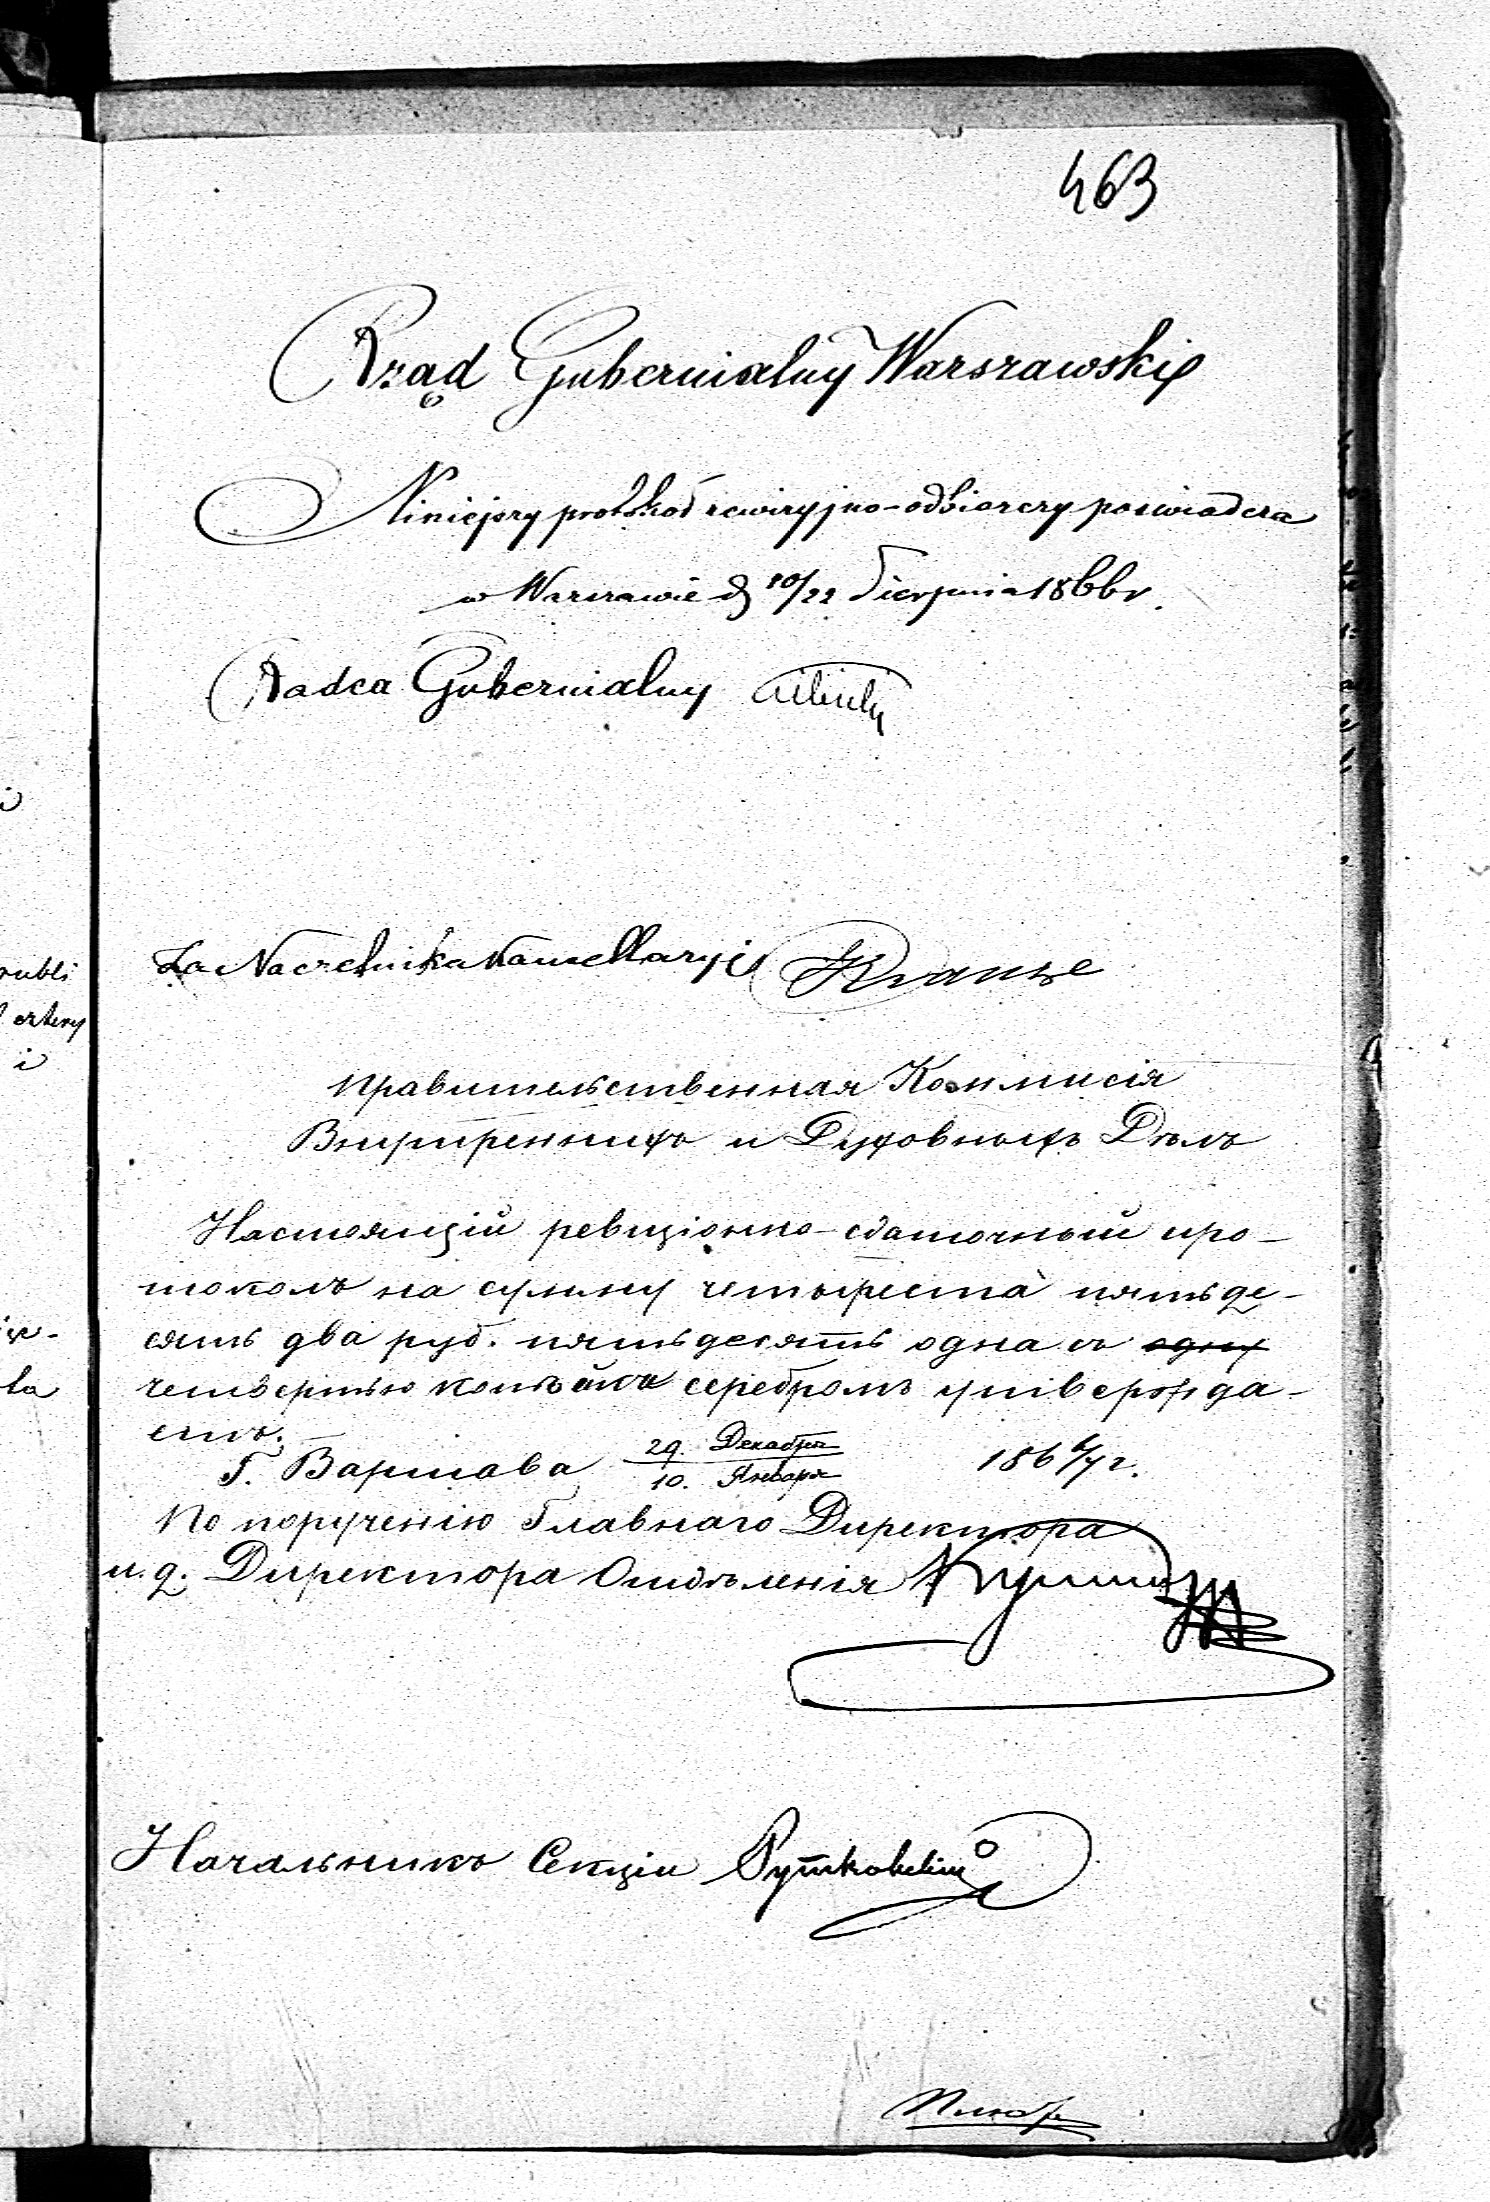 463
Rząd Gubernialny Warszawski
Niniejszy protokół rewizyjno-odbiorczy poświadcza
w Warszawie d 10/22 Sierpnia 1866 r.
Radca Gubernialny
Za Naczelnika Kancellaryi Krauze
Правительственная Коммисія
Внутреннихъ и Духовныхъ Дѣлъ
Настоящій ревизіонно-сдаточный про-
токолъ на сумму четыреста пятьде-
сятъ два руб. пятьдесятъ одна съ одну
четвертью копѣйка серебромъ утвержда-
етъ.
Г. Варшава 29. Декабря / 10. Января 1866/7 г.
По порученію Главнаго Директора
и. д. Директора Отдѣленія
Начальникъ Секціи Рутковскій
rubli
i
la